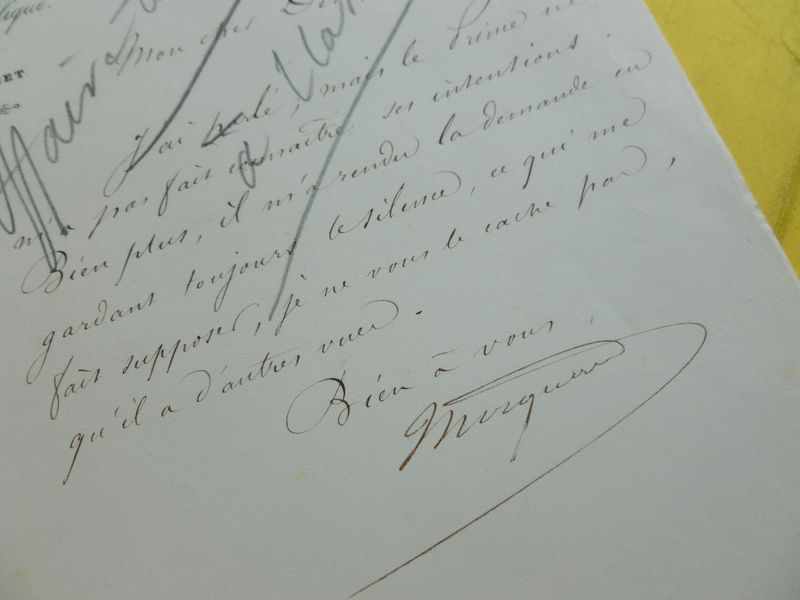 lique.
NET
Mon cher
J'ai parlé, mais le Prince ne
m'a pas fait connaître ses intentions.
Bien plus, il m'a rendu la demande en
gardant toujours le silence, ce qui me
fait supposer, je ne vous le cache pas,
qu'il a d'autres vues.
Bien à vous,